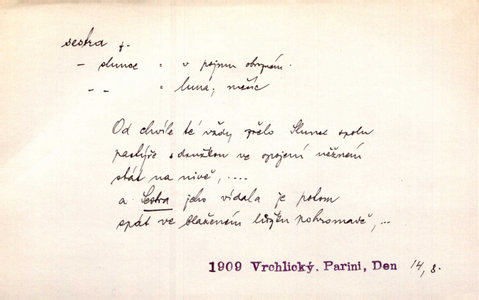 sestra f.
- slunce = v pojmu obrazném.
- - = luna, měsíc
Od chvíle té vždy zřelo Slunce spolu
pastýře s družkou ve spojení něžném
stát na nivě, ....
a Sestra jeho vídala je potom
spát ve blaženém lůžku pohromadě, ...
1909 Vrchlický. Parini, Den 14, 8.